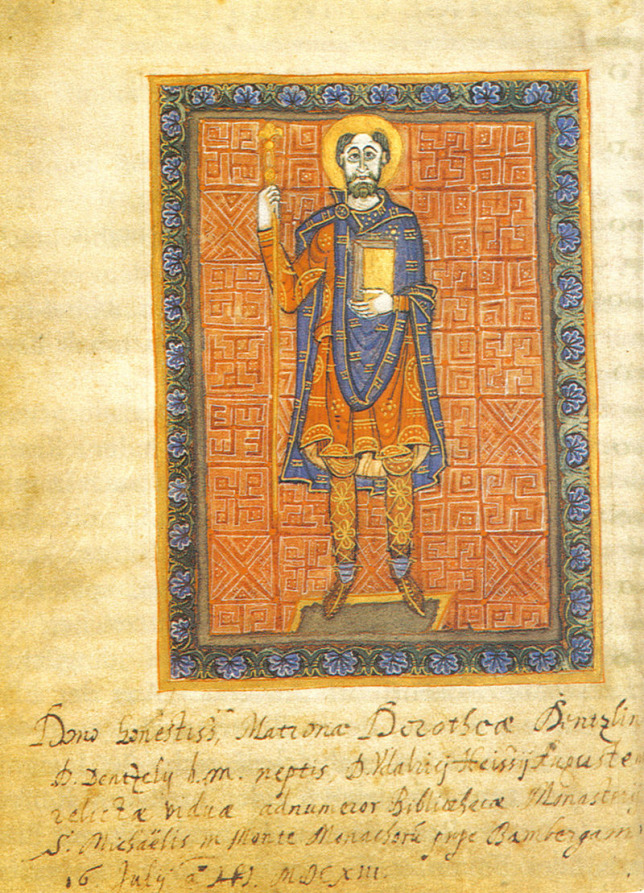 Dono honestiss, Matronæ Dorotheæ Dentzlin
D. Dentzely b.m. neptis, D. Vdalrici
relictæ viduæ adnumeror Bibliothecæ Monasterij
S. Michaëlis in Monte Monachorũ prope Bambergam
16 July aͦ MDCXIII.